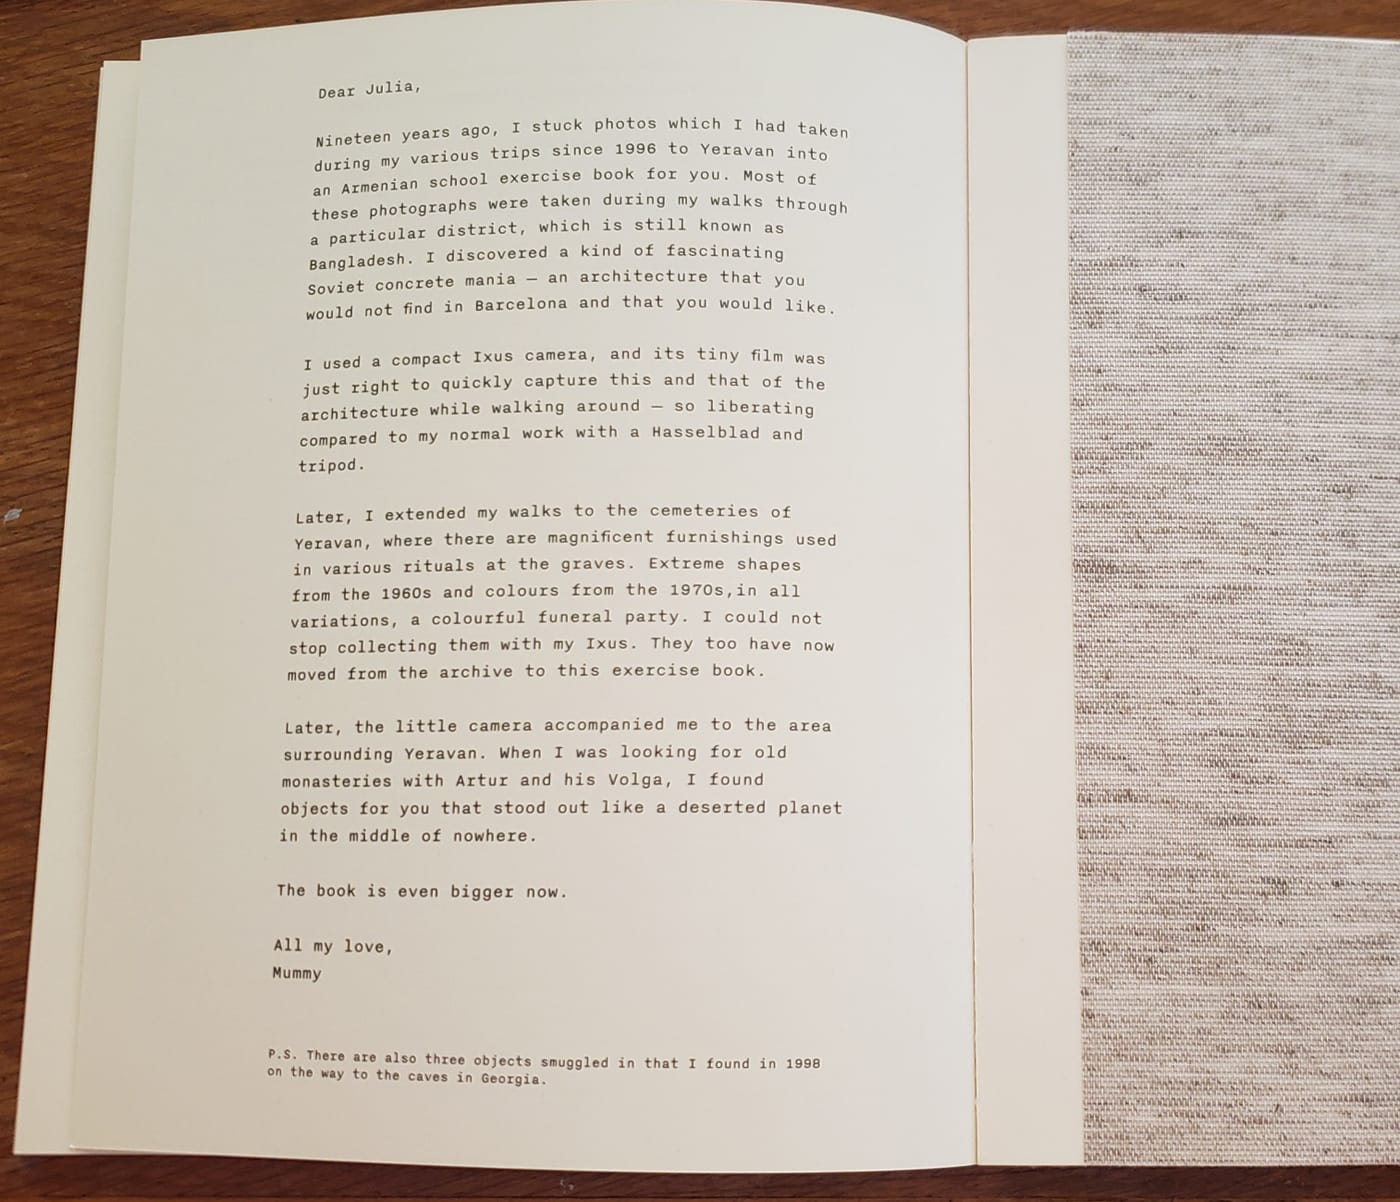 Dear Julia,
Nineteen years ago, I stuck photos which I had taken
during my various trips since 1996 to Yeravan into
an Armenian school exercise book for you. Most of
these photographs were taken during my walks through
a particular district, which is still known as
Bangladesh. I discovered a kind of fascinating
Soviet concrete mania — an architecture that you
would not find in Barcelona and that you would like.
I used a compact Ixus camera, and its tiny film was
just right to quickly capture this and that of the
architecture while walking around — so liberating
compared to my normal work with a Hasselblad and
tripod.
Later, I extended my walks to the cemeteries of
Yeravan, where there are magnificent furnishings used
in various rituals at the graves. Extreme shapes
from the 1960s and colours from the 1970s,in all
variations, a colourful funeral party. I could not
stop collecting them with my Ixus. They too have now
moved from the archive to this exercise book.
Later, the little camera accompanied me to the area
surrounding Yeravan. When I was looking for old
monasteries with Artur and his Volga, I found
objects for you that stood out like a deserted planet
in the middle of nowhere.
The book is even bigger now.
All my love,
Mummy
P.S. There are also three objects smuggled in that I found in 1998
on the way to the caves in Georgia.